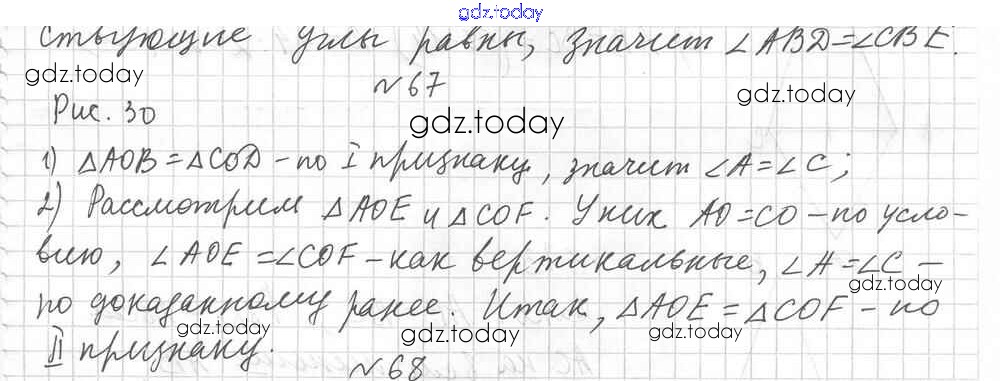 gdz.today
ствующие углы равны, значит ∠ABD=∠CBE.
gdz.today
№67
gdz.today
Рис. 30
gdz.today
1) △AOB=△COD – по I признаку, значит ∠A=∠C;
2) Рассмотрим △AOE и △COF. У них AO=CO – по усло-
вию, ∠AOE=∠COF – как вертикальные, ∠A=∠C –
gdz.today
по доказанному ранее. Итак, △AOE=△COF – по
gdz.today gdz.today gdz.today
II признаку.
№68